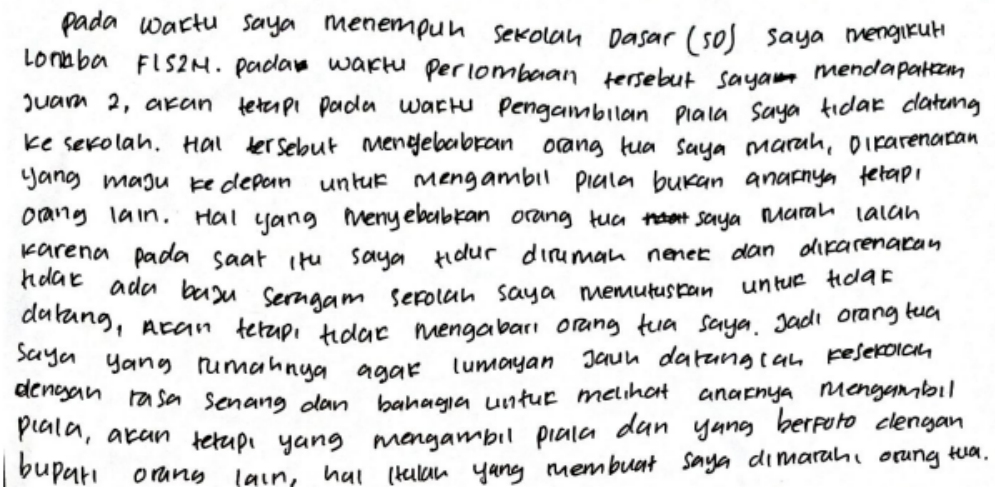 Pada waktu saya menempuh sekolah Dasar (SD) saya mengikuti
Lomba FLS2N. pada waktu perlombaan tersebut saya mendapatkan
Juara 2, akan tetapi pada waktu pengambilan piala saya tidak datang
ke sekolah. Hal tersebut menyebabkan orang tua saya marah, Dikarenakan
yang maju kedepan untuk mengambil piala bukan anaknya tetapi
orang lain. Hal yang menyebabkan orang tua saya marah ialah
karena pada saat itu saya tidur dirumah nenek dan dikarenakan
tidak ada baju seragam sekolah saya memutuskan untuk tidak
datang, Akan tetapi tidak mengabari orang tua saya. Jadi orang tua
saya yang rumahnya agak lumayan Jauh datanglah kesekolah
dengan rasa senang dan bahagia untuk melihat anaknya mengambil
piala, akan tetapi yang mengambil piala dan yang berfoto dengan
bupati orang lain, hal itulah yang membuat saya dimarahi orang tua.